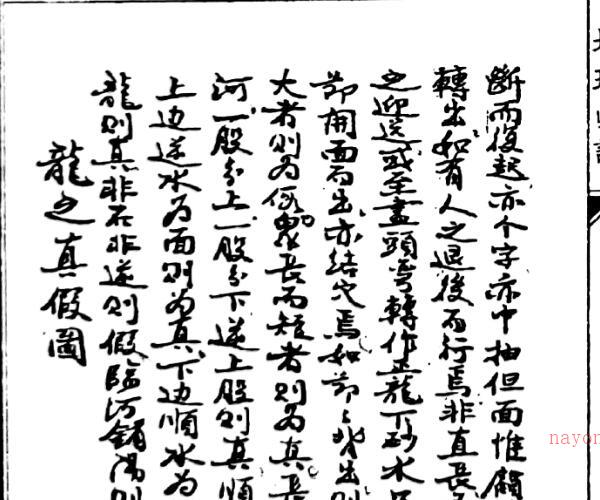 斷而後起亦个字亦中抽但面惟
轉出如有人之退後而行焉非直長
之迎送或至盡頭彎轉作直龍下砂水
節開面而出亦結穴焉如節〻背出則
大者則為假氣長而短者則為真長
河一股分上一股分下逆上股則真順
上边逆水為面則為真下边順水為
龍則真非在非逆則假臨河銷陽則
龍之真假圖
nayon